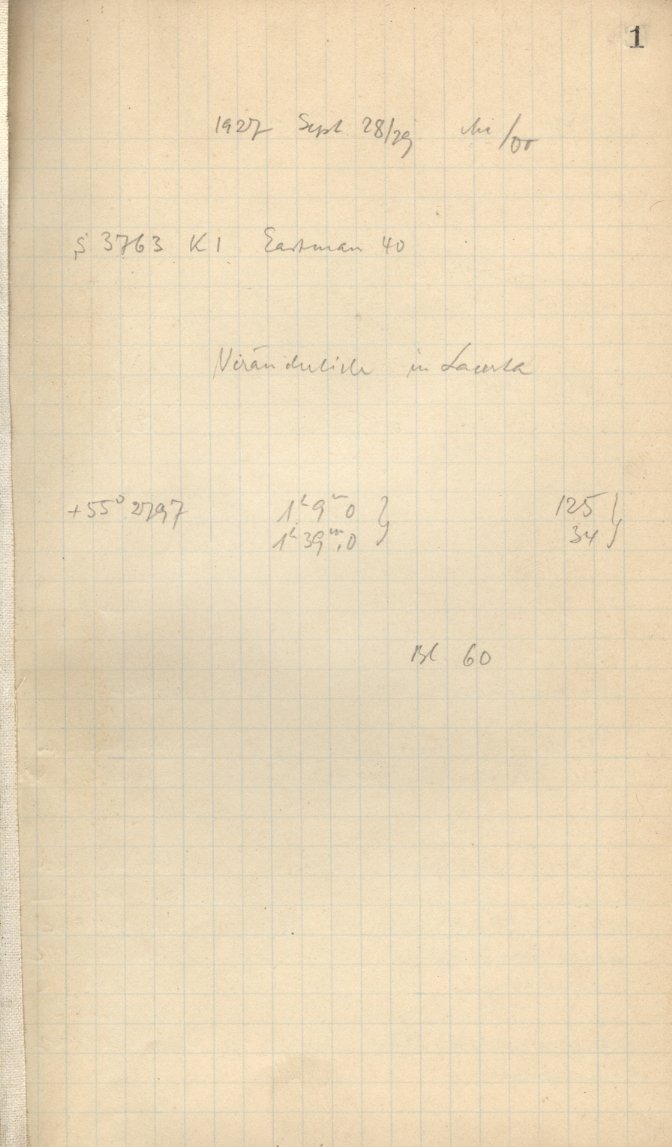 1
1927 Sept 28/29 Mi/Do
S 3763 K1 Eastman 40
Veränderliche in Lacerta
+55° 2797 1ʰ 9ᵐ 0 } 125 }
1ʰ 39ᵐ,0 34
Bl 60